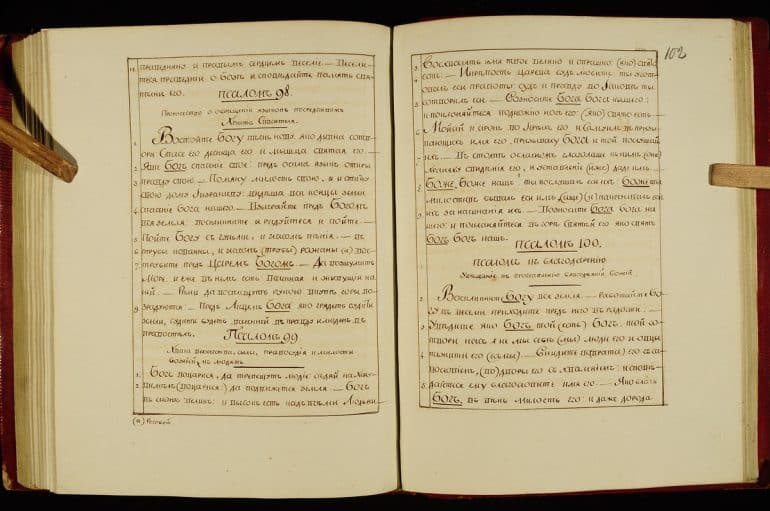 праведнико и правымъ сердцемъ веселіе — Весели-
теся праведніи о Богѣ и сповѣдайте память свя-
тыни его. Псаломъ 98.
Пророчество о обращеніи языковъ
Христа Спасителя.
Воспойте Богу пѣснь нову яко дивна сотво-
ри Спасе его десница его и мышца святая его.
Яви Богъ спасеніе свое: предъ очима языкъ откры
правду свою — Помяну милость свою, и истину
свою дому Ізраилеву: видѣша вси концы земли
спасеніе Бога нашего — Взыграйте предъ Богомъ
вся земля: воскликните и радуйтеся и пойте —
Пойте Богу съ гусльми, и гласомъ пѣнія — въ
трубы кованны, и гласомъ (трубы) рожаны (а) вос-
трубите предъ Царемъ Богомъ — Да возшумитъ
море и еже въ немъ есть: вселенная и живущіи на
ней — Реки да восплещутъ рукою: вкупѣ горы
возрадуются — Предъ лицемъ Бога яко грядетъ судити
земли, судити будетъ вселенней въ правду и людемъ въ
правостехъ. Псаломъ 99
Хвала величества, силы, правосудія и милости
божіей къ людемъ
Богъ воцарися, да трепещутъ людіе: седяй на Херу-
вимѣхъ (воцарися) да подвижется земля — Богъ
въ Сіонѣ великъ: и высокъ есть надъ всѣми людьми —
(а) роговой
102
Восхвалятъ имя твое велико и страшно: (яко) свято
есть — И крѣпость царева судъ любитъ: ты угото-
валъ еси правоты: судъ и правду во Іаковѣ ты
сотворилъ еси — Возносите Бога Бога нашего:
и покланяйтеся подножію ногъ его: (яко) свято есть —
Мойсей и Ааронъ во іереехъ его и Самуилъ въ призы-
вающихъ имя его, призываху Бога и той послуша
ихъ — Въ столпѣ облачномъ глаголаше къ нимъ (они)
сведенія его, и уставленіе (иже) даде имъ —
Боже, Боже нашъ: ты послушалъ еси ихъ: Боже ты
милостивъ бывалъ еси имъ
за начинанія ихъ — Возносите Бога Бога на-
шего: и покланяйтеся въ горѣ святѣй его яко святъ
Богъ Богъ нашъ. Псаломъ 100.
Псаломъ въ благодареніе.
Увѣщаніе къ благостыни божіей.
Воскликните Богу вся земля — работайте Бо-
гу въ веселіи приходите предъ него въ радости —
Увѣдите яко Богъ той (есть) Богъ, той со-
твори насъ а не мы себе (мы) люди его и овцы
пажити его (есмы) — Внидите (во врата) его съ ис-
повѣданіемъ, (во) дворы его съ хваленіемъ: исповѣ-
дайтеся ему благословите имя его — Яко благъ
Богъ, въ вѣкъ милость его: и даже до рода